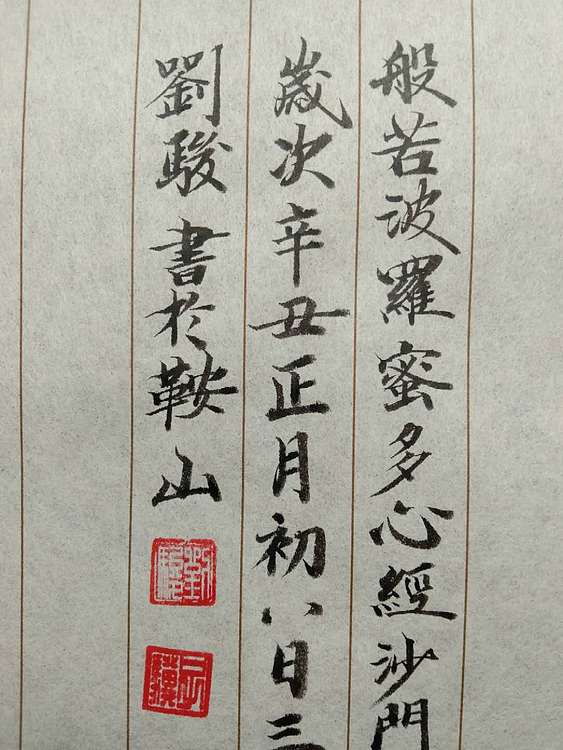 般若波羅蜜多心經沙門
歲次辛丑正月初八日三
劉駿書於鞍山